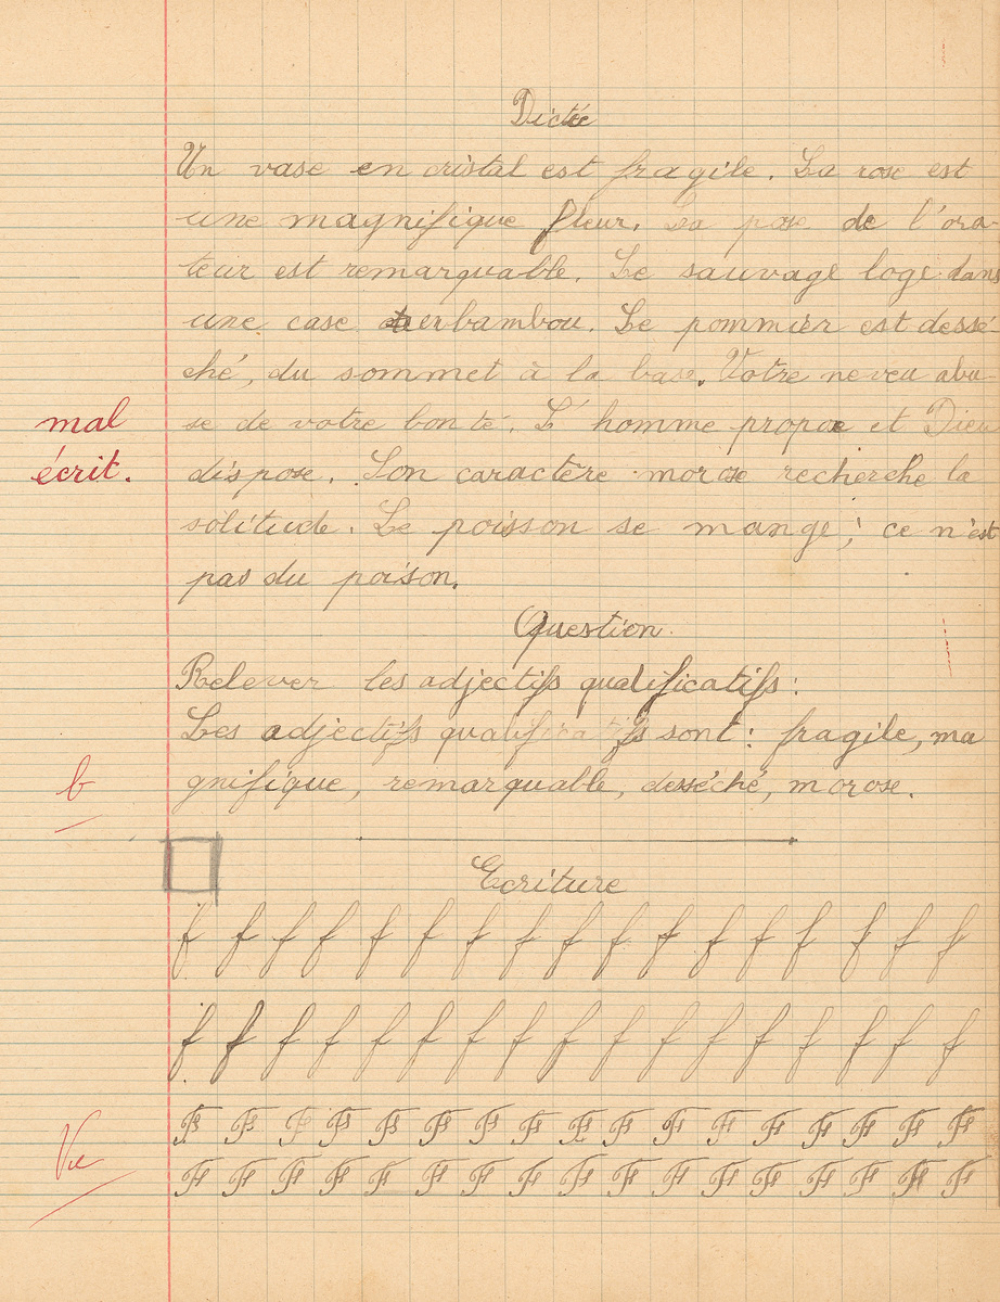 Dictée
Un vase en cristal est fragile. La rose est
une magnifique fleur. La pose de l'ora-
teur est remarquable. Le sauvage loge dans
une case en bambou. Le pommier est dessé-
ché, du sommet à la base. Votre neveu abu-
se de votre bonté. L'homme propose et Dieu
mal
dispose. Son caractère morose recherche la
écrit.
solitude. Le poisson se mange ; ce n'est
pas du poison.
Question
Relever les adjectifs qualificatifs :
Les adjectifs qualificatifs sont : fragile, ma
gnifique, remarquable, desséché, morose.
b
Ecriture
f f f f f f f f f f f f f f f f f
f f f f f f f f f f f f f f f f f
F F F F F F F F F F F F F F F F F
F F F F F F F F F F F F F F F F F
Vu